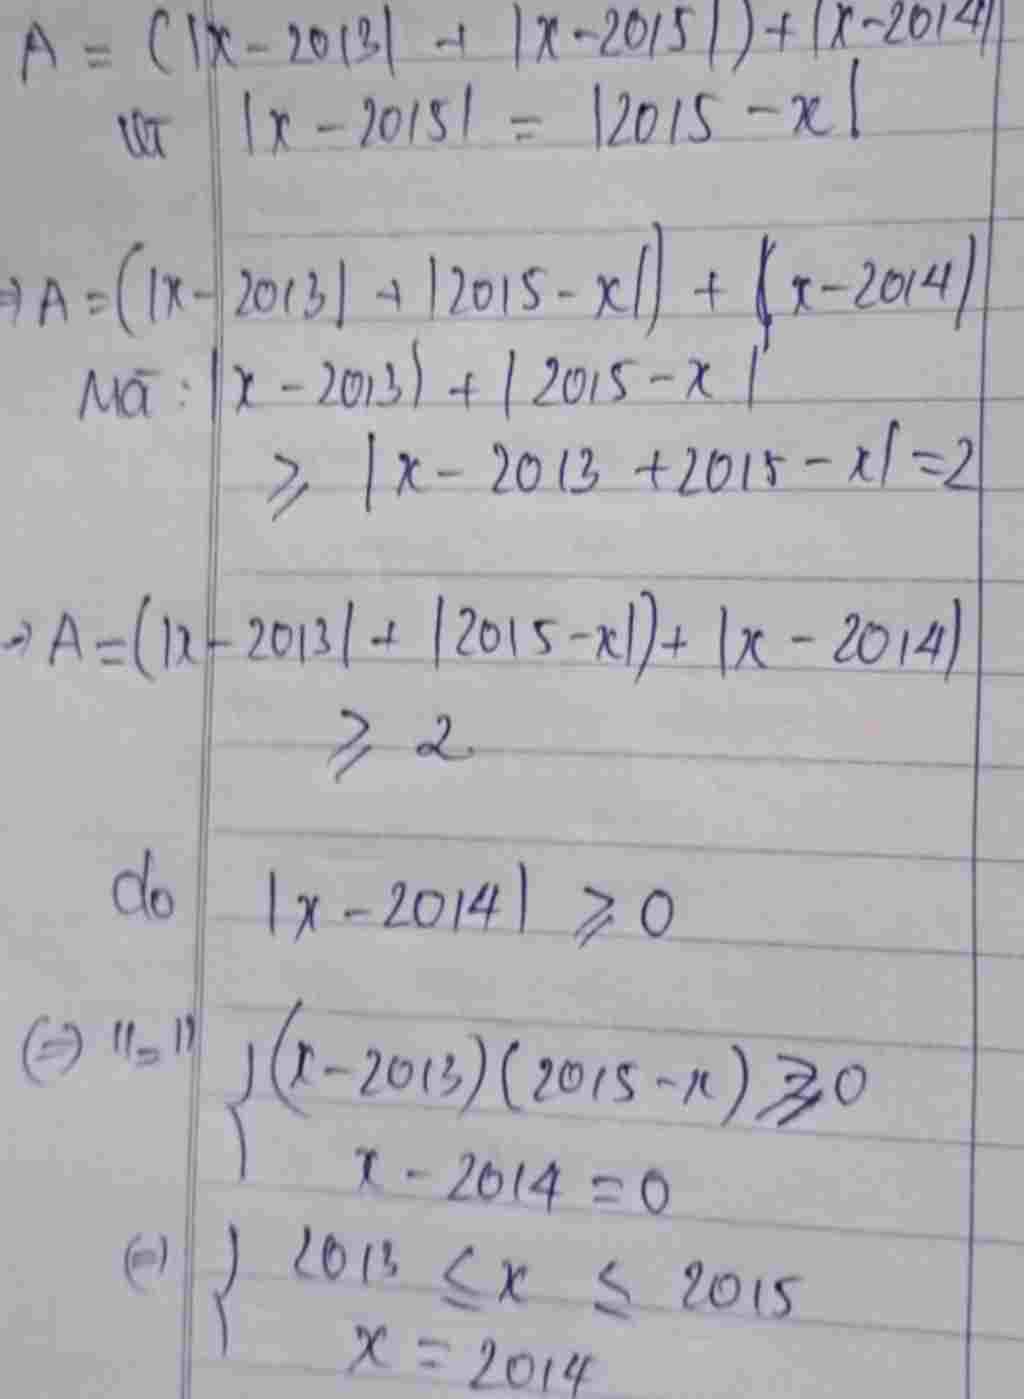 A = (|x - 2013| + |x - 2015|) + |x - 2014|
vì |x - 2015| = |2015 - x|
⇒ A = (|x - 2013| + |2015 - x|) + |x - 2014|
Mà : |x - 2013| + |2015 - x|
⩾ |x - 2013 + 2015 - x| = 2
→ A = (|x - 2013| + |2015 - x|) + |x - 2014|
⩾ 2
do |x - 2014| ⩾ 0
(=) "=" { (x - 2013)(2015 - x) ⩾ 0
x - 2014 = 0
(=) { 2013 ≤ x ≤ 2015
x = 2014